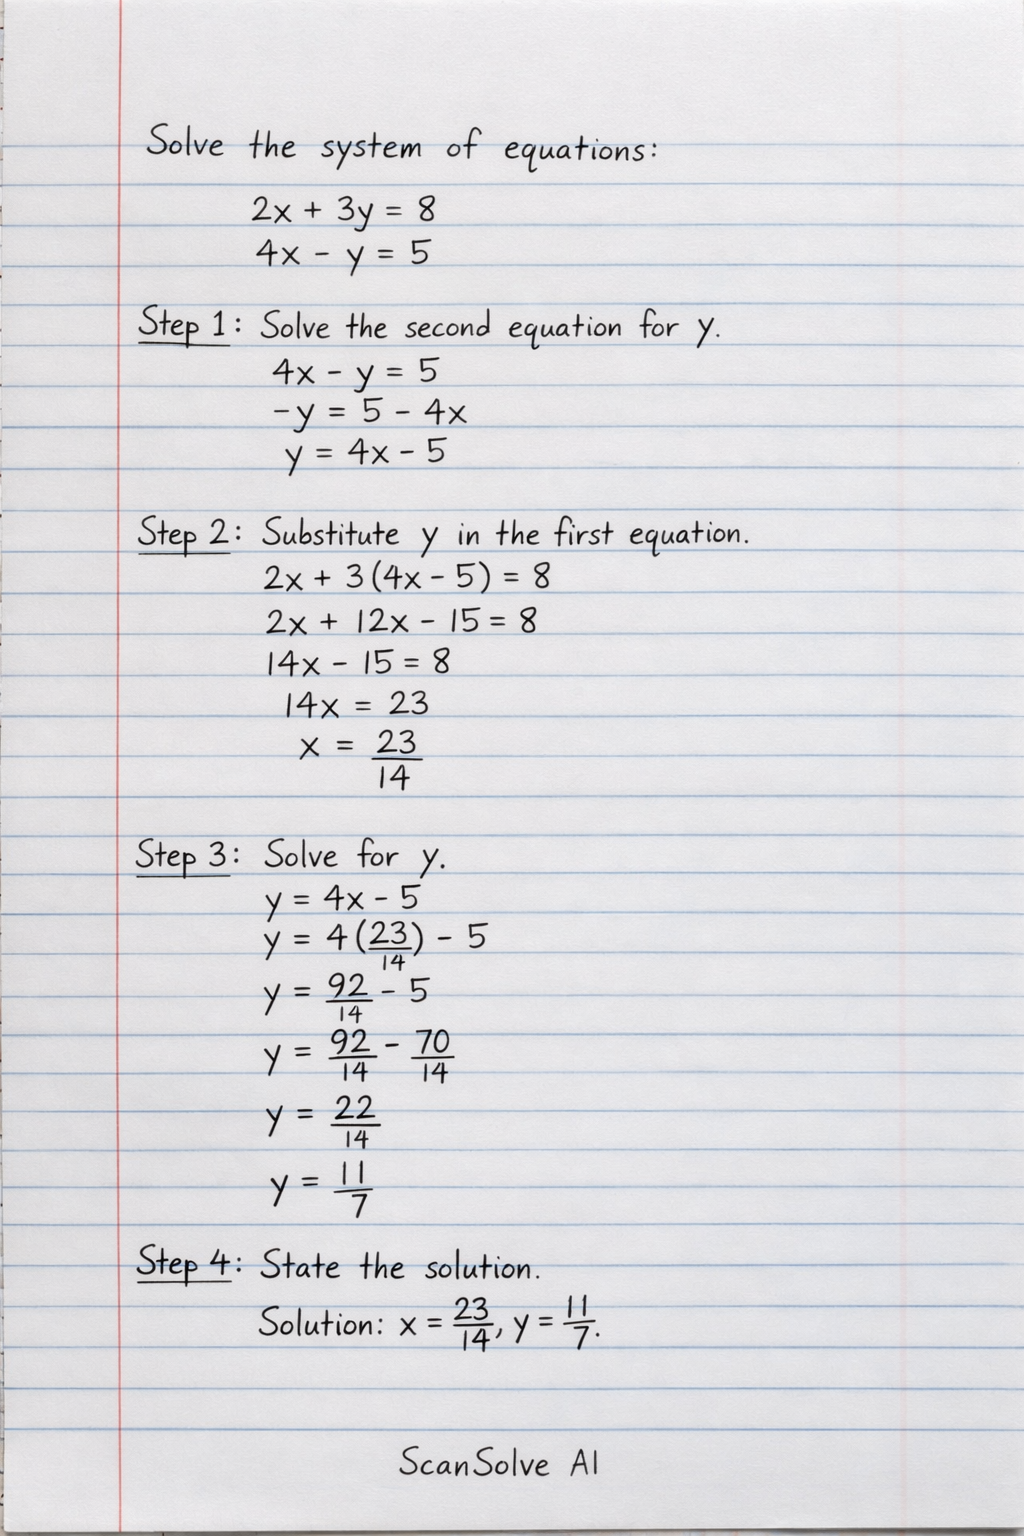 Solve the system of equations:
2x + 3y = 8
4x - y = 5
Step 1: Solve the second equation for y.
4x - y = 5
-y = 5 - 4x
y = 4x - 5
Step 2: Substitute y in the first equation.
2x + 3(4x - 5) = 8
2x + 12x - 15 = 8
14x - 15 = 8
14x = 23
x = 23/14
Step 3: Solve for y.
y = 4x - 5
y = 4(23/14) - 5
y = 92/14 - 5
y = 92/14 - 70/14
y = 22/14
y = 11/7
Step 4: State the solution.
Solution: x = 23/14, y = 11/7.
ScanSolve AI